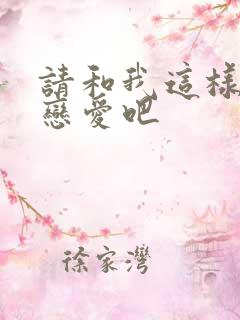 請和我這樣
戀愛吧
徐家灣